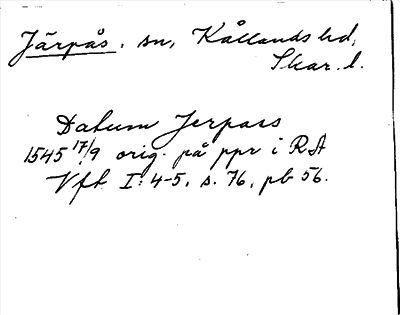 Järpås. sn, Kållands hd,
Skar. l.
Datum Jerpaas
1545 17/9 orig. på ppr i RA
Vft I: 4-5, s. 76, pb 56.